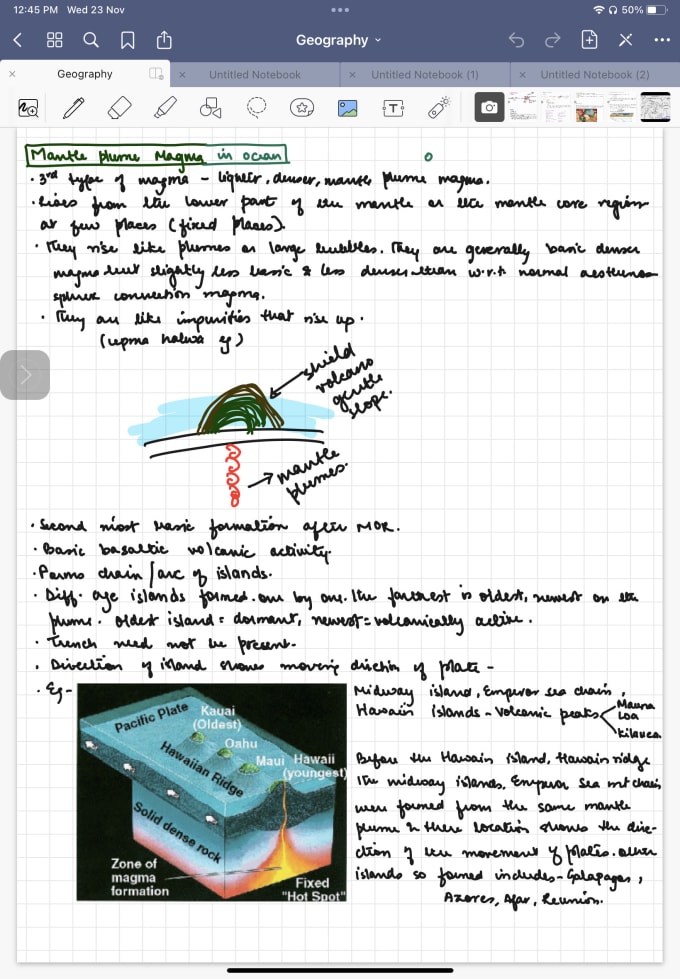 12:45 PM Wed 23 Nov
50%
Geography
Geography
Untitled Notebook
Untitled Notebook (1)
Untitled Notebook (2)
Mantle plume Magma in ocean
• 3rd type of magma - lighter, denser, mantle plume magma.
• Rises from the lower part of the mantle or the mantle core region
at few places (fixed places).
• They rise like plumes or large bubbles. They are generally basic denser
magma but slightly less basic & less denser than w.r.t normal
convection magma.
• They are like impurities that rise up.
(upma halwa eg)
shield
volcano
gentle
slope.
mantle
plumes.
• Second most basic formation after MOR.
• Basic basaltic volcanic activity.
• Forms chain / arc of islands.
• Diff. age islands formed one by one. The farthest is oldest, newest on the
plume. oldest island = dormant, newest = volcanically active.
• Trench need not be present.
• Direction of island shows moving direction of plate -
• Eg -
Midway island, Emperor sea chain,
Hawain islands - Volcanic peaks
Mauna
Loa
Kilauea
Pacific Plate
Kauai
(Oldest)
Oahu
Maui
Hawaii
(youngest)
Hawaiian Ridge
Solid dense rock
Zone of
magma
formation
Fixed
"Hot Spot"
Before the Hawain island, Hawain ridge
the midway islands, Emperor Sea mt chain
were formed from the same mantle
plume & there location shows the dire-
ction of the movement of plates. other
islands so formed includes - Galapagos,
Azores, Afar, Reunion.